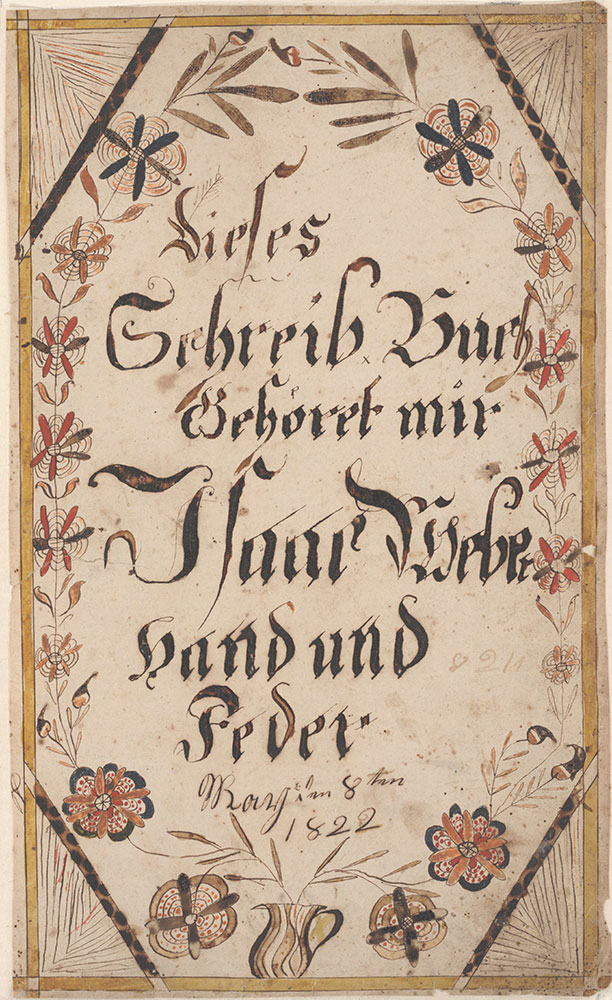 Dieses
Schreib Buch
Gehöret mir
Isaac Weber
Hand und
Feder
May den 8ten
1822